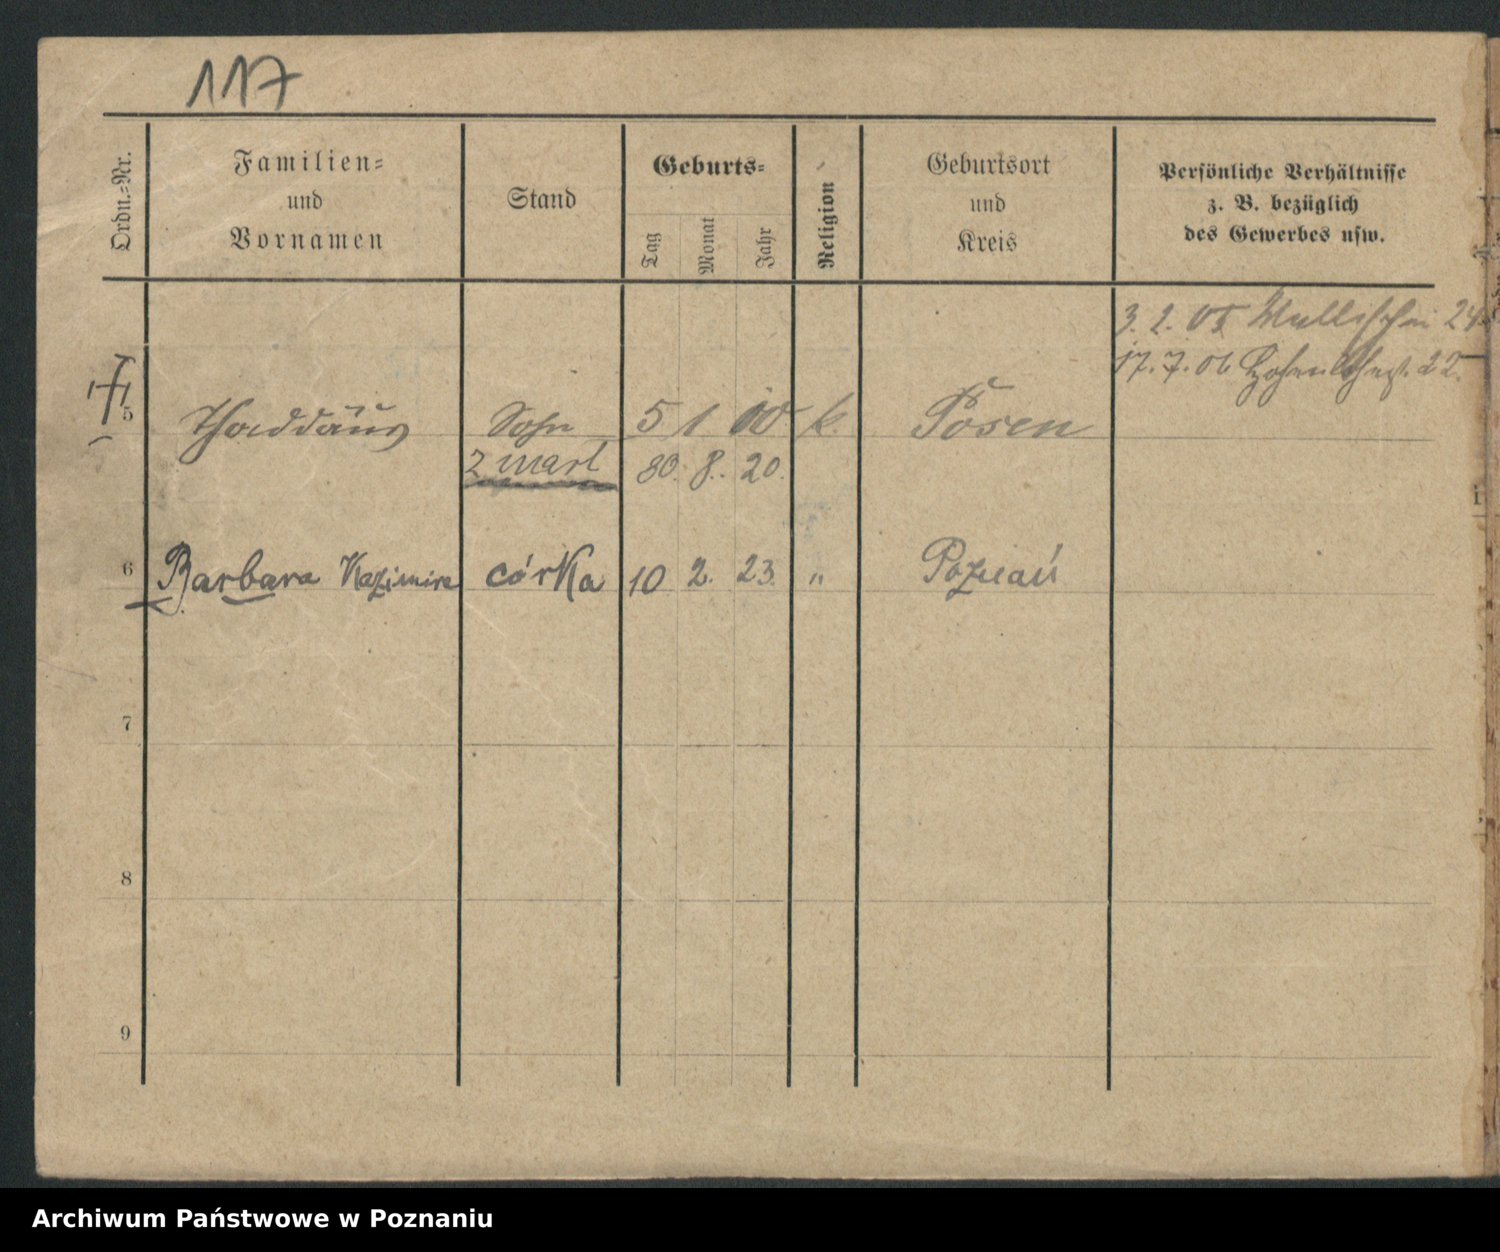 117
Ordn.-Nr.
Familien-
und
Vornamen
Stand
Geburts-
Tag
Monat
Jahr
Religion
Geburtsort
und
Kreis
Persönliche Verhältnisse
z. B. bezüglich
des Gewerbes usw.
3. 2. 05 Wallischei 24
17. 7. 06
22.
5 Thaddäus Sohn 5 1 00 k. Posen
zmarł 30. 8. 20.
6 Barbara Kazimira córka 10 2. 23. " Poznań
7
8
9
Archiwum Państwowe w Poznaniu